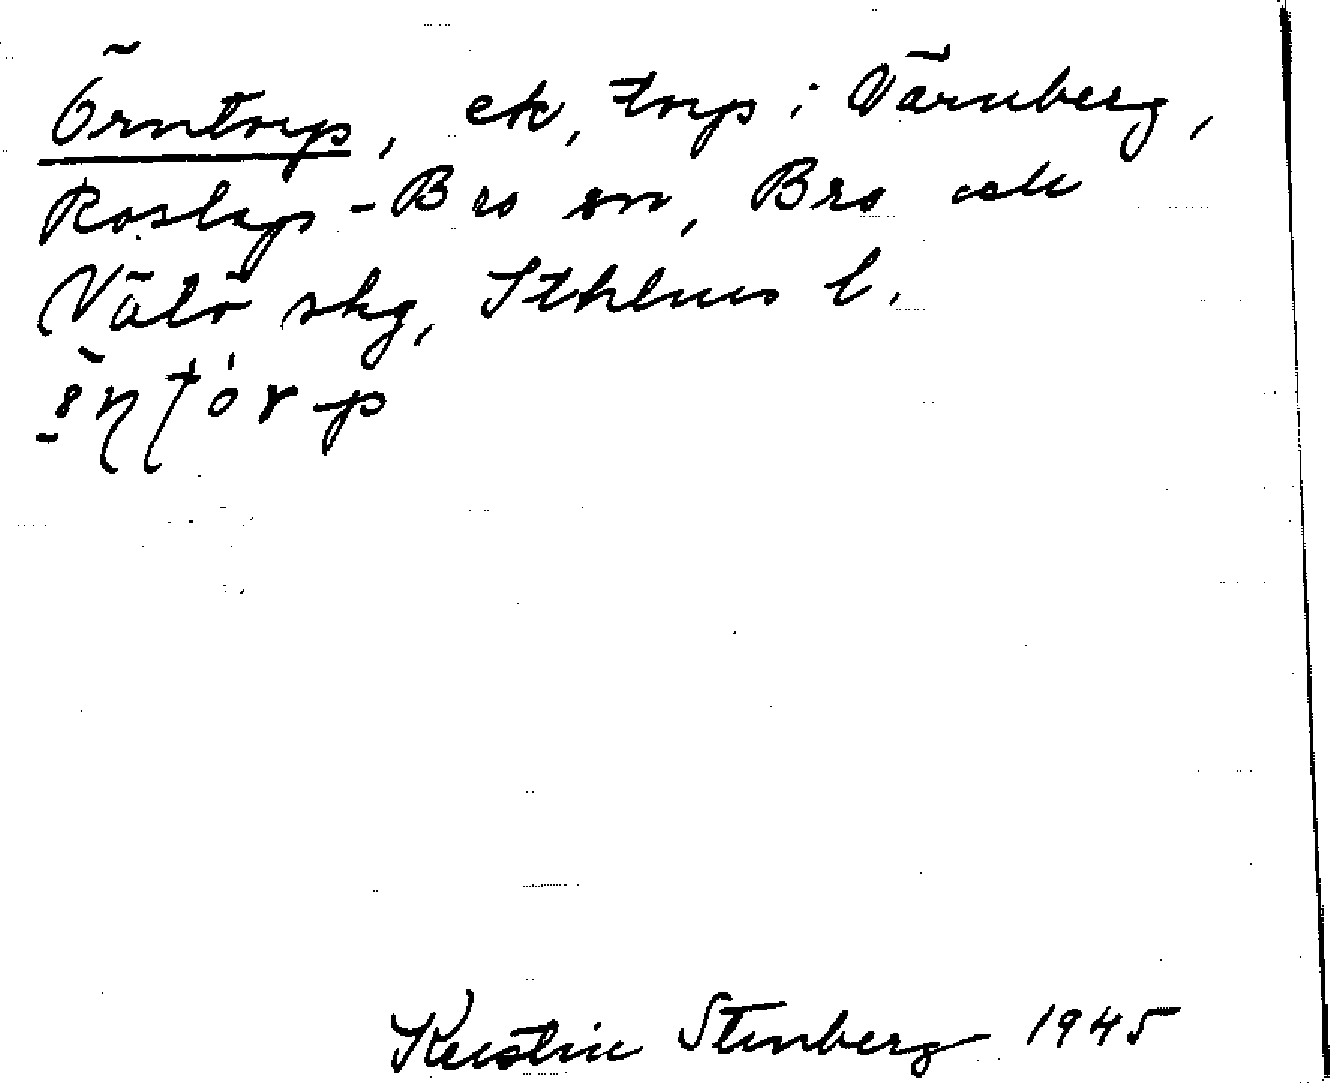 Örntorp, ek, torp i Värnberg,
Roslags-Bro sn, Bro och
Vätö skg, Sthlms l.
Kerstin Stenberg 1945